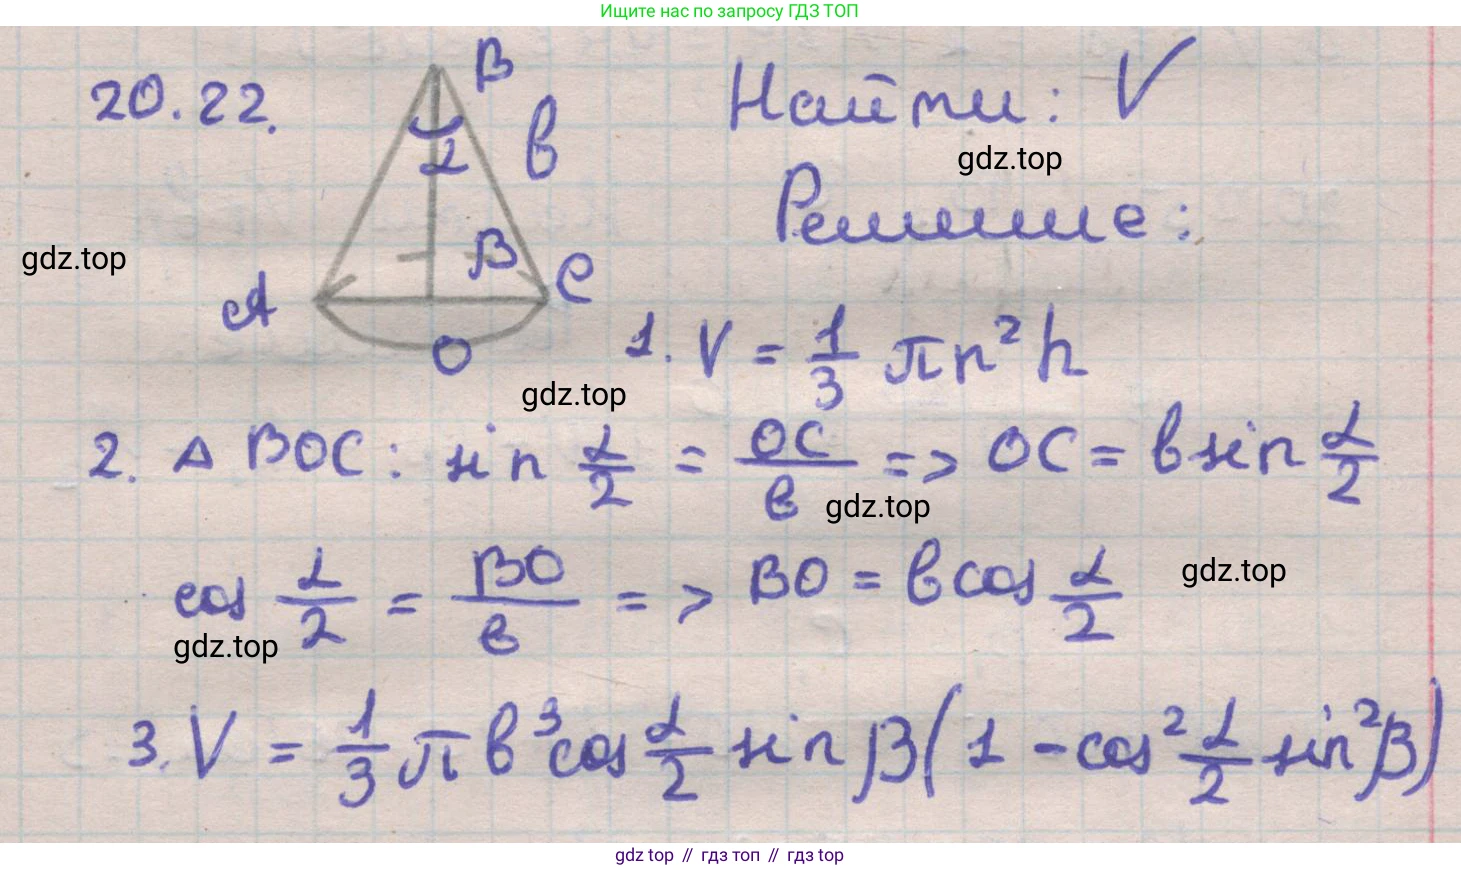 Ищите нас по запросу ГДЗ ТОП
20.22.
B
α
в
β
A
C
O
Найти: V
gdz.top
Решение:
gdz.top
1. V = 1/3 πr²h
gdz.top
2. △ BOC: sin α/2 = OC/в => OC = в sin α/2
gdz.top
cos α/2 = BO/в => BO = в cos α/2
gdz.top
gdz.top
3. V = 1/3 π в³ cos α/2 sin β (1 - cos² α/2 sin² β)
gdz top // гдз топ // gdz top